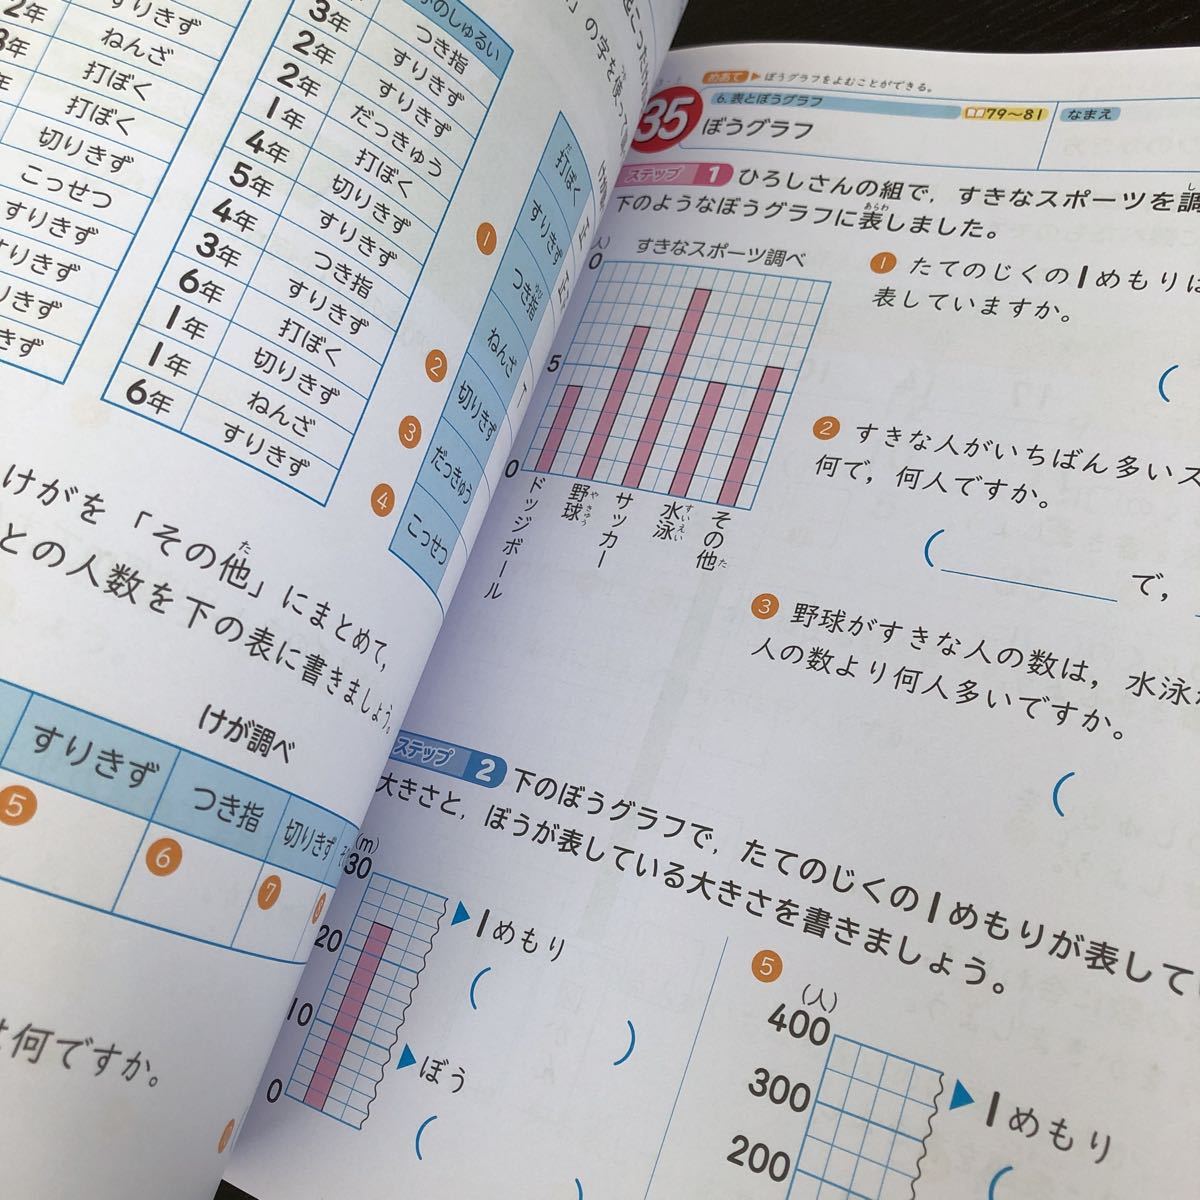 2年
すりきず
3年
ねんざ
打ぼく
打ぼく
切りきず
こっせつ
すりきず
すりきず
りきず
きず
のしゅるい
3年 つき指
2年 すりきず
2年 すりきず
1年 だっきゅう
4年 打ぼく
5年 切りきず
4年 すりきず
3年 つき指
6年 すりきず
1年 打ぼく
1年 切りきず
6年 ねんざ
すりきず
の字を使って
打ぼく
❶ すりきず
つき指
ねんざ
❷ 切りきず
❸ だっきゅう
❹ こっせつ
けがを「その他」にまとめて,
との人数を下の表に書きましょう。
けが調べ
すりきず つき指 切りきず
❺ ❻ ❼ ❽
何ですか。
めあて ▶ ぼうグラフをよむことができる。
35
6. 表とぼうグラフ
ぼうグラフ
79〜81
なまえ
ステップ 1 ひろしさんの組で, すきなスポーツを調
下のようなぼうグラフに表しました。
すきなスポーツ調べ
5
0
ドッジボール
野球
サッカー
水泳
その他
❶ たてのじくの1めもりは
表していますか。
(
❷ すきな人がいちばん多いス
何で, 何人ですか。
( で,
❸ 野球がすきな人の数は, 水泳が
人の数より何人多いですか。
(
ステップ 2 下のぼうグラフで, たてのじくの1めもりが表して
大きさと, ぼうが表している大きさを書きましょう。
(m)
30
20
10
0
▶1めもり
( )
▶ぼう
(
❺
(人)
400
300
200
▶1めもり